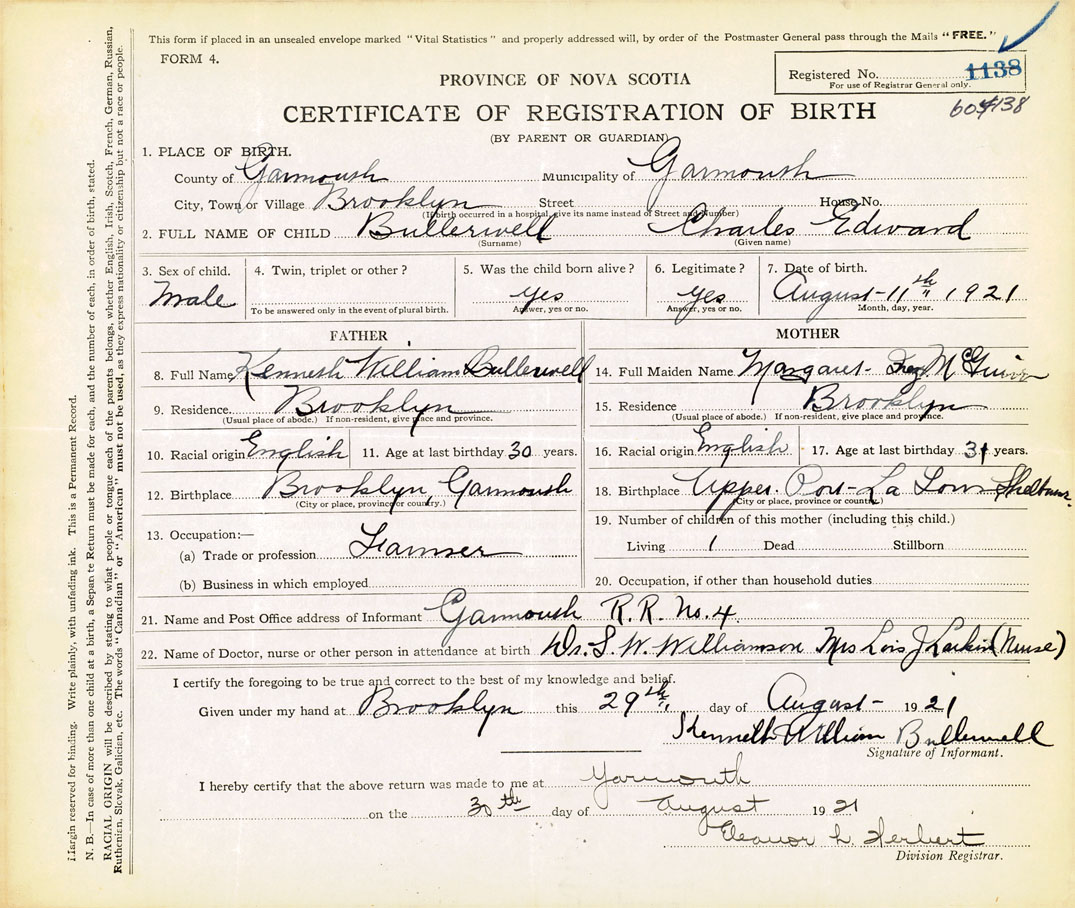 This form if placed in an unsealed envelope marked "Vital Statistics" and properly addressed will, by order of the Postmaster General pass through the Mails "FREE."
FORM 4.
PROVINCE OF NOVA SCOTIA
Registered No. 1138
For use of Registrar General only.
CERTIFICATE OF REGISTRATION OF BIRTH
(BY PARENT OR GUARDIAN)
1. PLACE OF BIRTH.
County of Yarmouth Municipality of Yarmouth
City, Town or Village Brooklyn Street House No.
(If birth occurred in a hospital, give its name instead of Street and Number)
2. FULL NAME OF CHILD Bullerwell Charles Edward
(Surname) (Given name)
3. Sex of child. 4. Twin, triplet or other? 5. Was the child born alive? 6. Legitimate? 7. Date of birth.
Male yes yes August 11th 1921
To be answered only in the event of plural birth. Answer, yes or no. Answer, yes or no. Month, day, year.
FATHER MOTHER
8. Full Name Kenneth William Bullerwell 14. Full Maiden Name Margaret
9. Residence Brooklyn 15. Residence Brooklyn
(Usual place of abode.) If non-resident, give place and province. (Usual place of abode.) If non-resident, give place and province.
10. Racial origin English 11. Age at last birthday 30 years. 16. Racial origin English 17. Age at last birthday years.
12. Birthplace Brooklyn, Yarmouth 18. Birthplace Upper Port La Tour
(City or place, province or country.) (City or place, province or country.)
13. Occupation:— 19. Number of children of this mother (including this child.)
(a) Trade or profession Farmer Living 1 Dead Stillborn
(b) Business in which employed 20. Occupation, if other than household duties
21. Name and Post Office address of Informant Yarmouth R.R. No. 4
22. Name of Doctor, nurse or other person in attendance at birth Dr. S. W. Williamson Mrs Lois J Larkin (Nurse)
I certify the foregoing to be true and correct to the best of my knowledge and belief.
Given under my hand at Brooklyn this 29th day of August 1921
Kenneth William Bullerwell
Signature of Informant.
I hereby certify that the above return was made to me at Yarmouth
on the 30th day of August 1921
Eleanor L. Herbert
Division Registrar.
Margin reserved for binding. Write plainly, with unfading ink. This is a Permanent Record.
N. B.—In case of more than one child at a birth, a Separate Return must be made for each, and the number of each, in order of birth, stated.
RACIAL ORIGIN will be described by stating to what people or tongue each of the parents belongs, whether English, Irish, Scotch, French, German, Russian,
Ruthenian, Slovak, Galician, etc. The words "Canadian" or "American" must not be used, as they express nationality or citizenship but not a race or people.